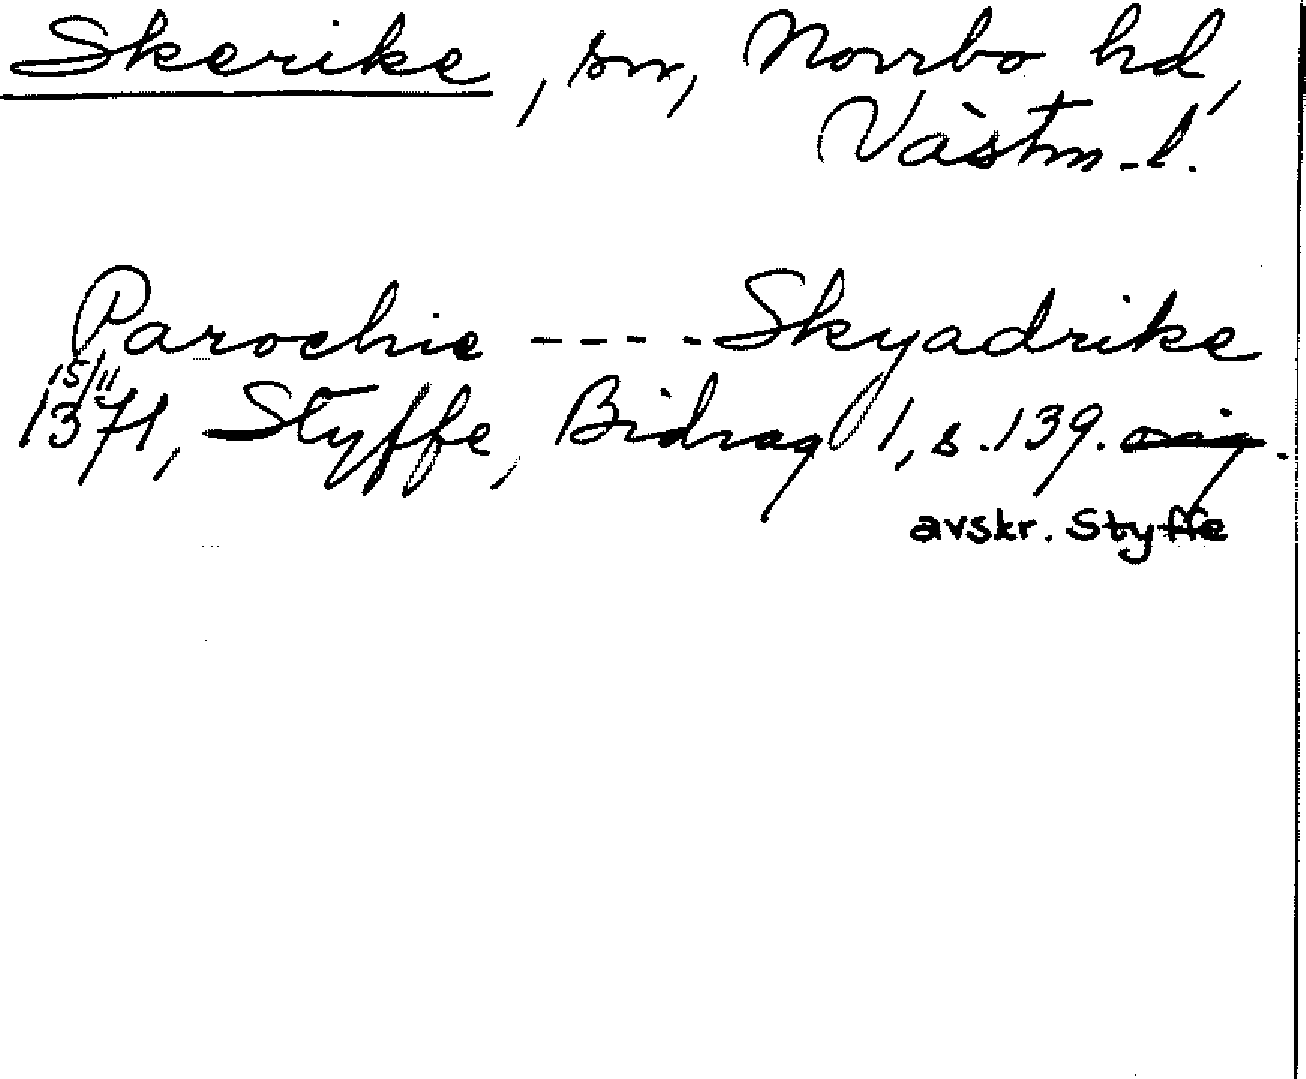 Skerike, sn, Norrbo hd,
Västm. l.
Parochie ---- Skyadrike
15/11
1371, Styffe, Bidrag 1, s. 139. orig.
avskr. Styffe